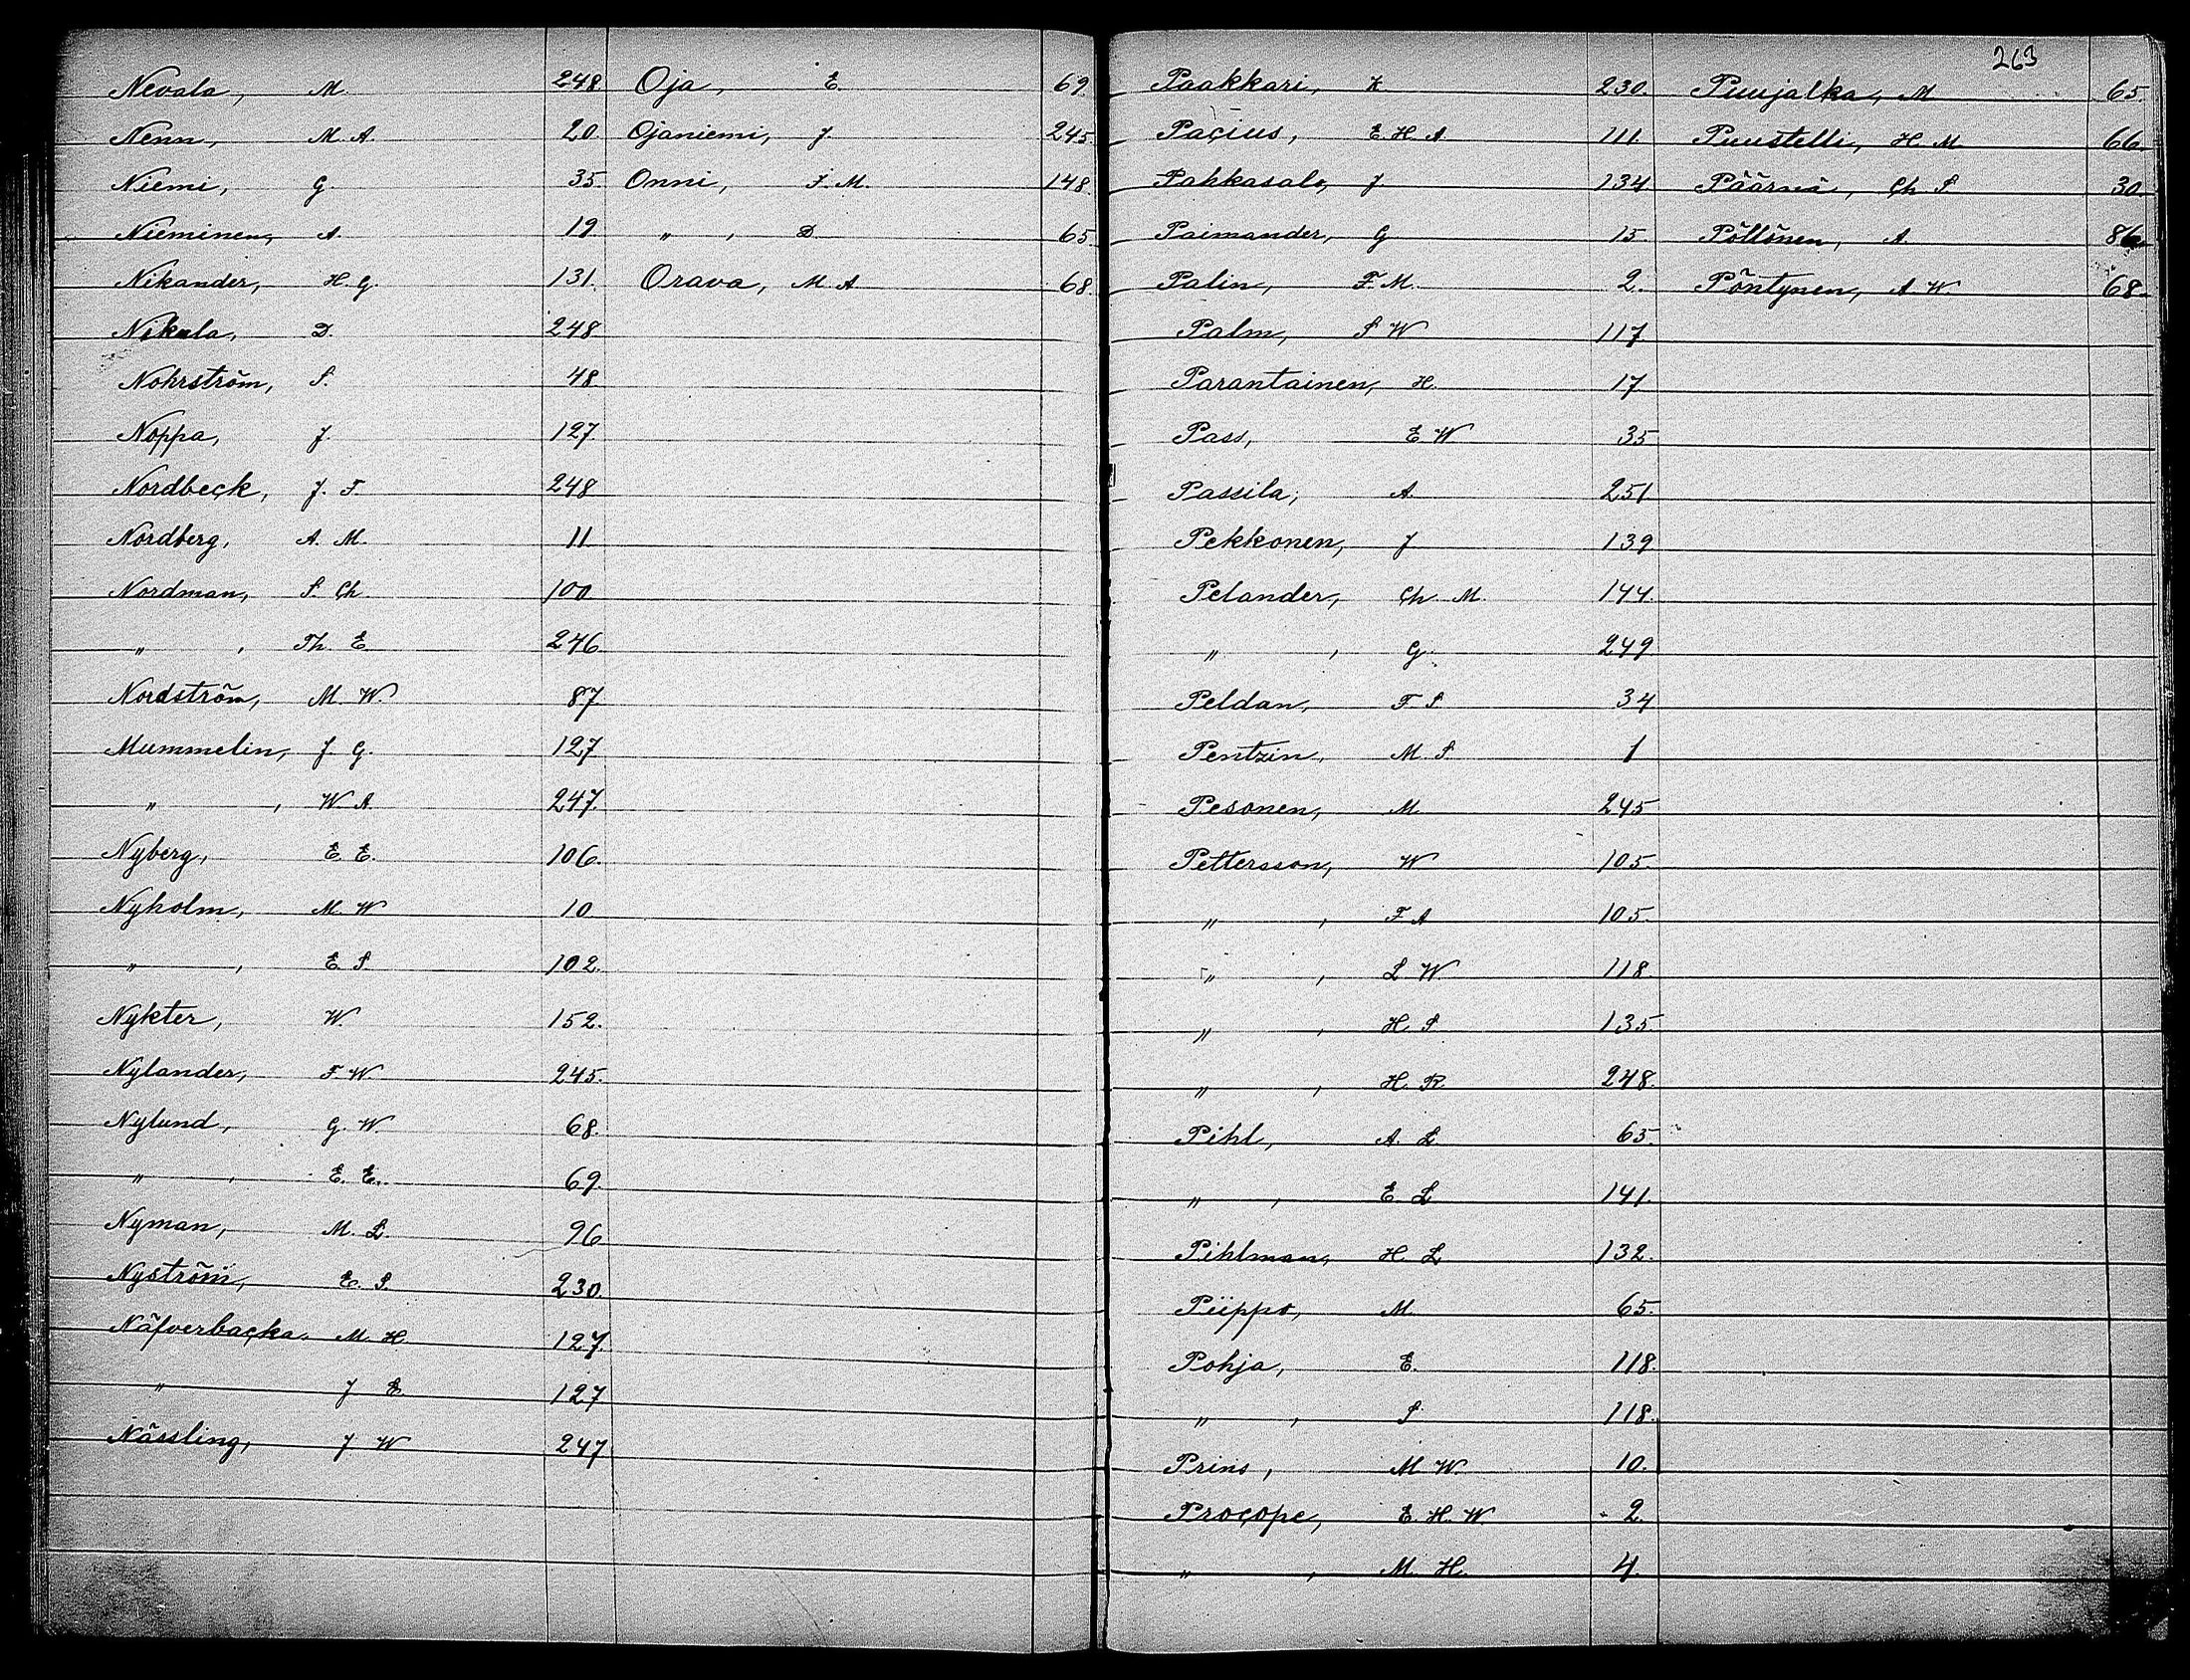 Nevala, M. 248
Nenn, M. A. 20.
Niemi, G. 35
Nieminen, A. 19
Nikander, H. G. 131.
Nikula, D. 248
Nohrström, S. 48
Noppa, J. 127.
Nordbeck, J. F. 248
Nordberg, A. M. 11
Nordman, S. Ch. 100
„ , Th. E 246
Nordström, M. W. 87
Mummelin, J. G. 127
„ , W. A. 247.
Nyberg, E. E. 106.
Nyholm, M. W 10
„ , E. S. 102.
Nykter, W. 152.
Nylander, F. W. 245.
Nylund, G. W. 68.
„ , E. E. 69.
Nyman, M. L. 96
Nyström, E. S. 230.
Näfverbacka. M. H. 127.
„ J E. 127
Nässling, J W 247
Oja, E. 69.
Ojaniemi, J. 245.
Onni, J. M. 148.
„ , D. 65.
Orava, M. A 68.
263
Paakkari, K. 230.
Pacius, E. H. A. 111.
Pahkasalo, J 134
Paimander, G 15.
Palin, F. M. 2.
Palm, S W 117
Parantainen, H. 17
Pass, E W 35
Passila, A. 251
Pekkonen, J 139
Pelander, Ch. M. 144.
„ , G. 249
Peldan, F. S 34
Pentzin, M. S. 1
Pesonen, M. 245
Pettersson, W 105.
„ , F A 105.
„ , L W 118.
„ , H. S 135
„ , H. R. 248.
Pihl, A. L 65.
„ , E. L 141.
Pihlman, H. L 132.
Piippo, M. 65.
Pohja, E. 118.
„ , S. 118.
Prins, M. W. 10.
Procope, E. H. W. 2.
„ , M. H. 4.
Puujalka, M 65.
Puustelli, H. M. 66.
Päärnä, Ch. S 30.
Pöllönen, A. 86
Pöntynen, A. W. 68.